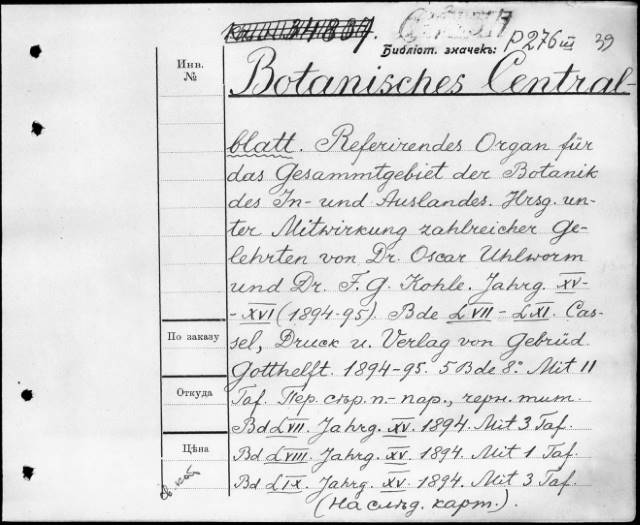 Библіот. значекъ: P276 III 39
Инв.
№
Botanisches Central-
blatt. Referirendes Organ für
das Gesammtgebiet der Botanik
des In- und Auslandes. Hrsg. un-
ter Mitwirkung zahlreicher Ge-
lehrten von Dr. Oscar Uhlworm
und Dr. F. G. Kohle. Jahrg. XV-
- XVI (1894-95). Bde LVII - LXI. Cas-
По заказу
sel, Druck u. Verlag von Gebrüd.
Gotthelft. 1894-95. 5 Bde 8:° Mit 11
Откуда
Taf. Пер. стр. п.-пар., черн. тит.
Bd LVII. Jahrg. XV. 1894. Mit 3 Taf.
Цѣна
Bd LVIII. Jahrg. XV. 1894. Mit 1 Taf.
Bd LIX. Jahrg. XV. 1894. Mit 3 Taf.
(На слѣд. карт.).